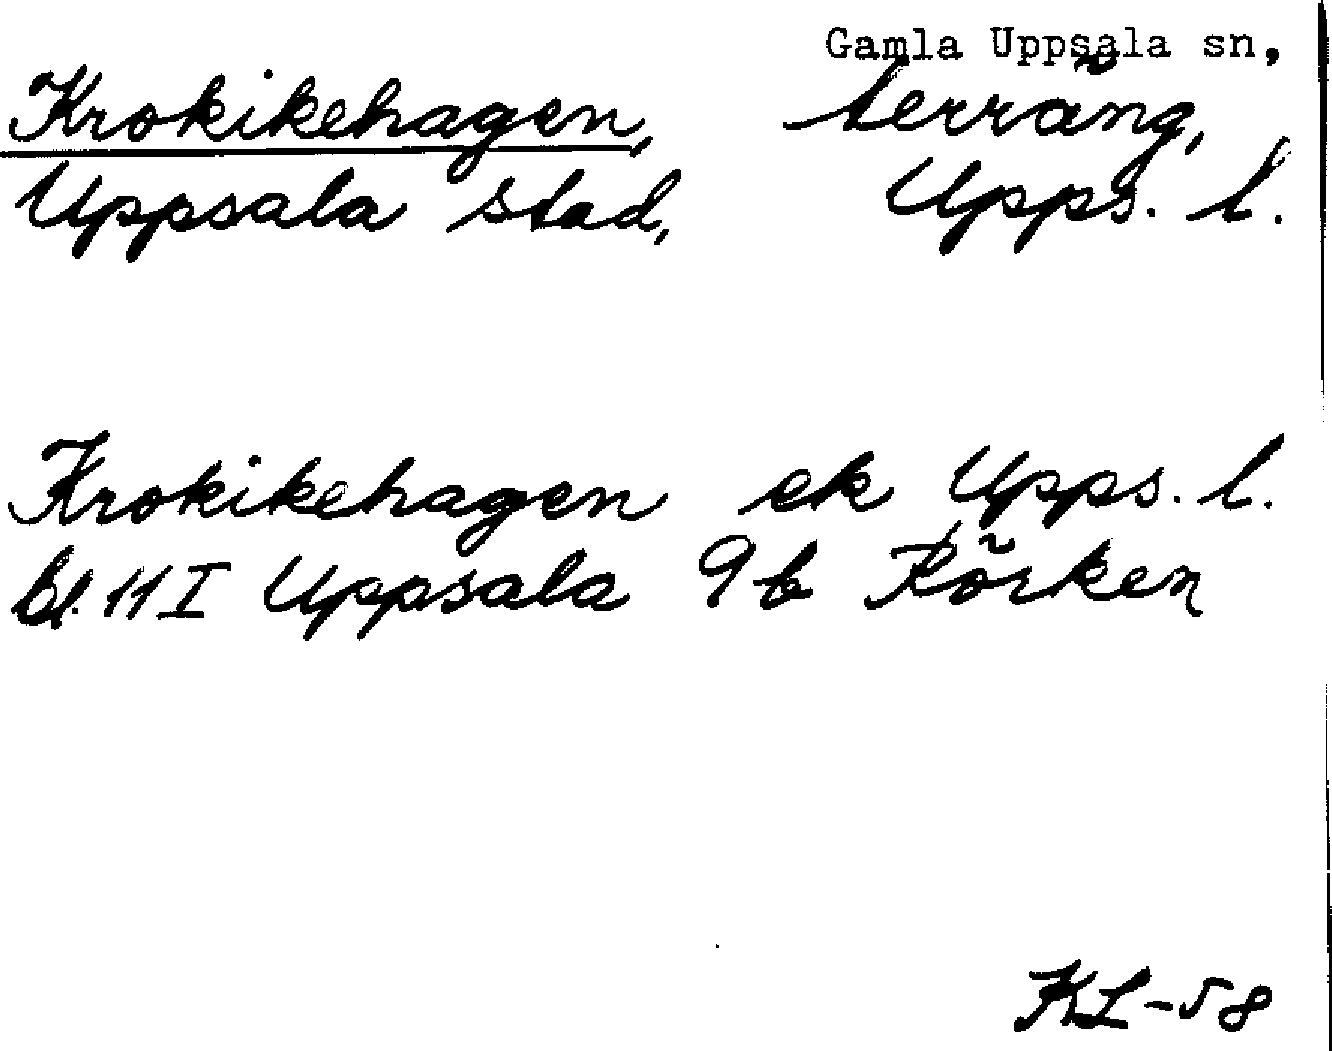 Gamla Uppsala sn,
Krokikehagen, terräng,
Uppsala stad, Upps. l.
Krokikehagen ek Upps. l.
bl. 11 I Uppsala 9 b Rörken
KL-58